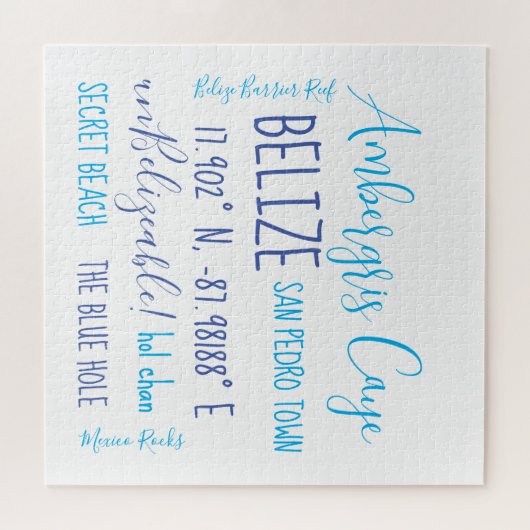 Ambergris Caye
Belize Barrier Reef
BELIZE SAN PEDRO TOWN
17.902° N, -87.98188° E
unBelizeable! hol chan
SECRET BEACH THE BLUE HOLE
Mexico Rocks